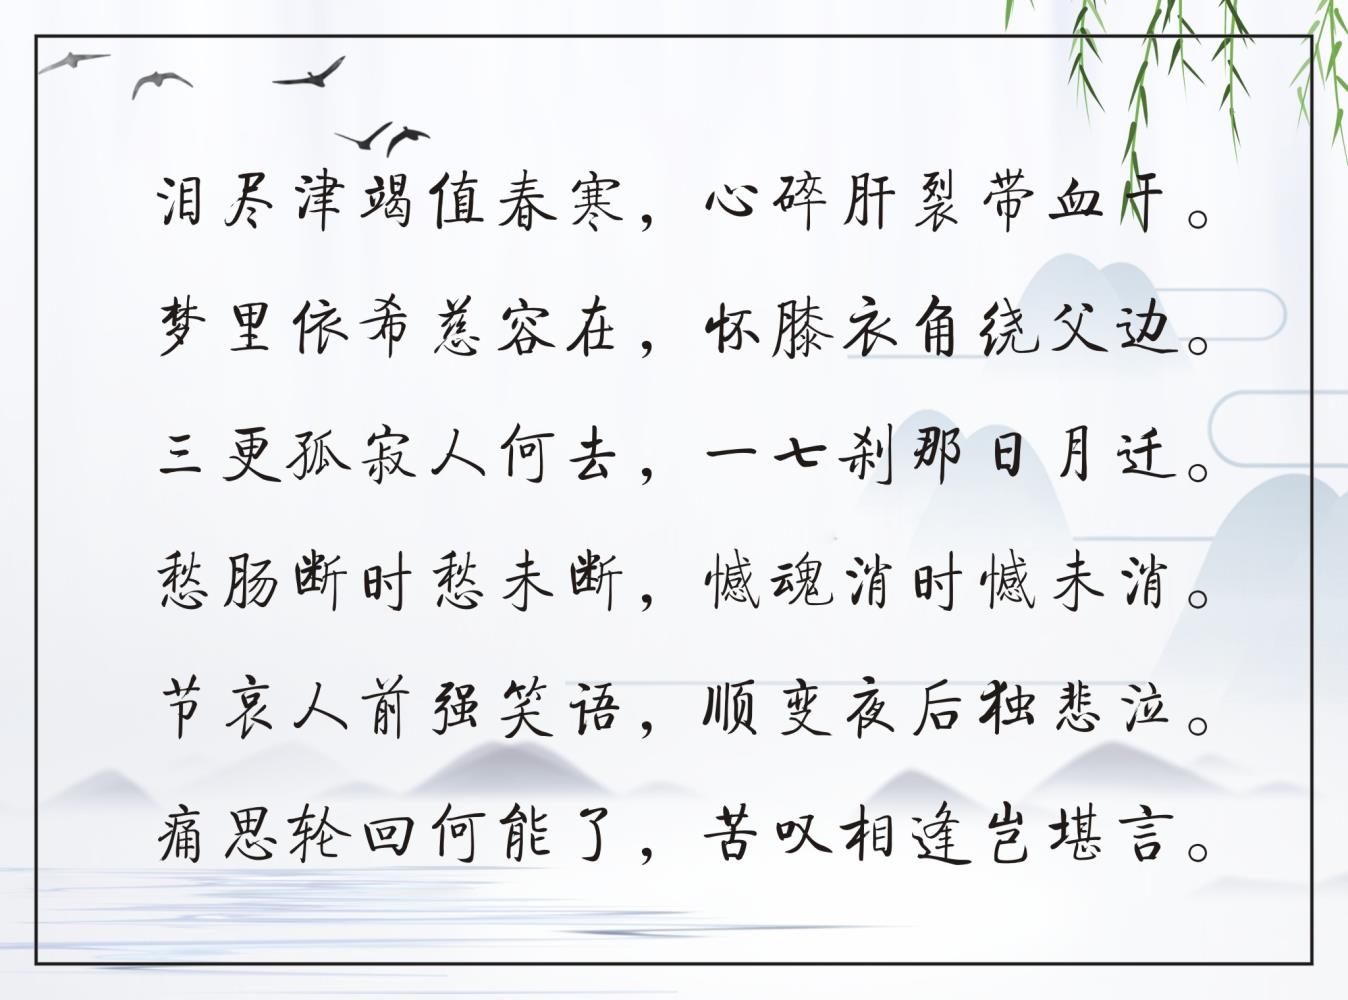 泪尽津竭值春寒，心碎肝裂带血干。
梦里依希慈容在，怀膝衣角绕父边。
三更孤寂人何去，一七刹那日月迁。
愁肠断时愁未断，憾魂消时憾未消。
节哀人前强笑语，顺变夜后独悲泣。
痛思轮回何能了，苦叹相逢岂堪言。